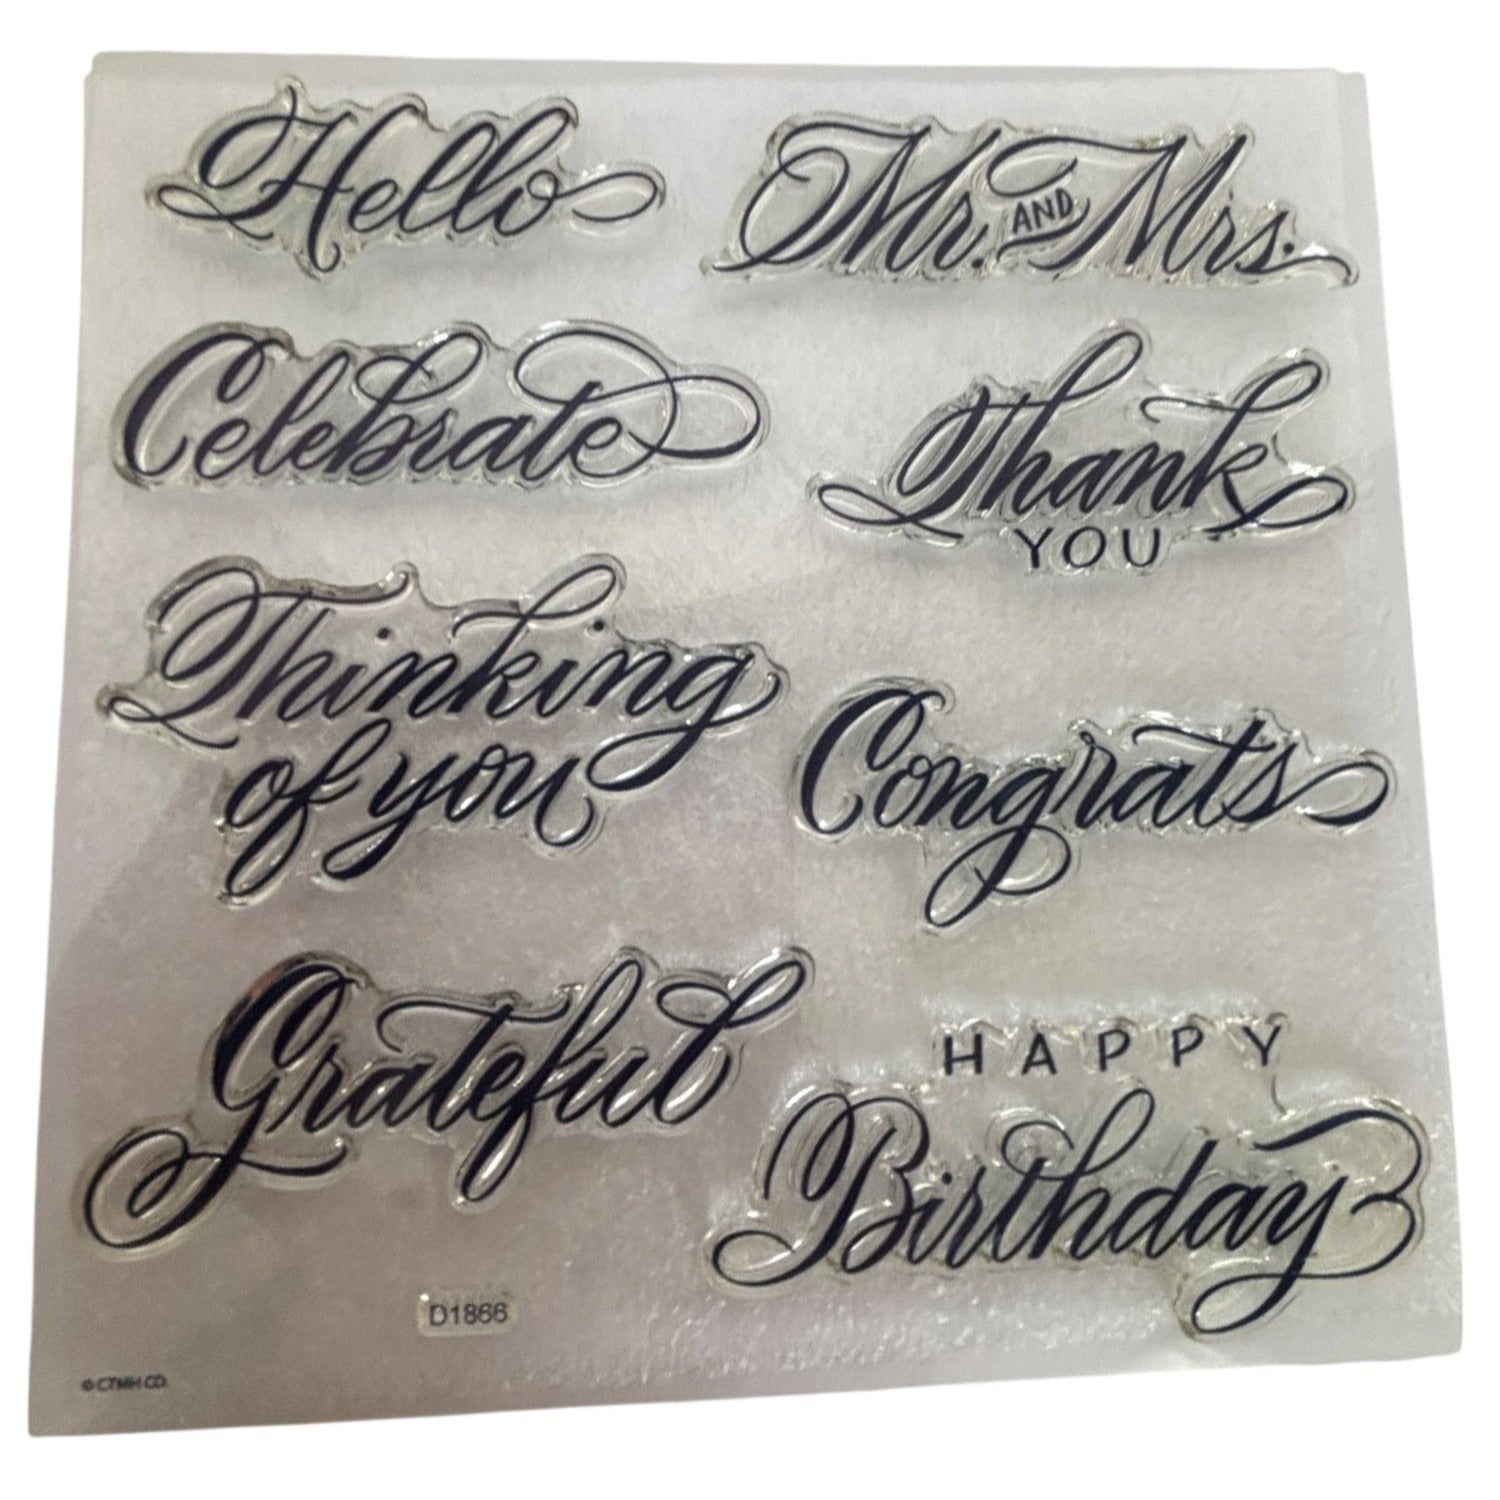 Hello
Mr. AND Mrs.
Celebrate
Thank
YOU
Thinking
of you
Congrats
Grateful
HAPPY
Birthday
D1866
© CTMH CO.